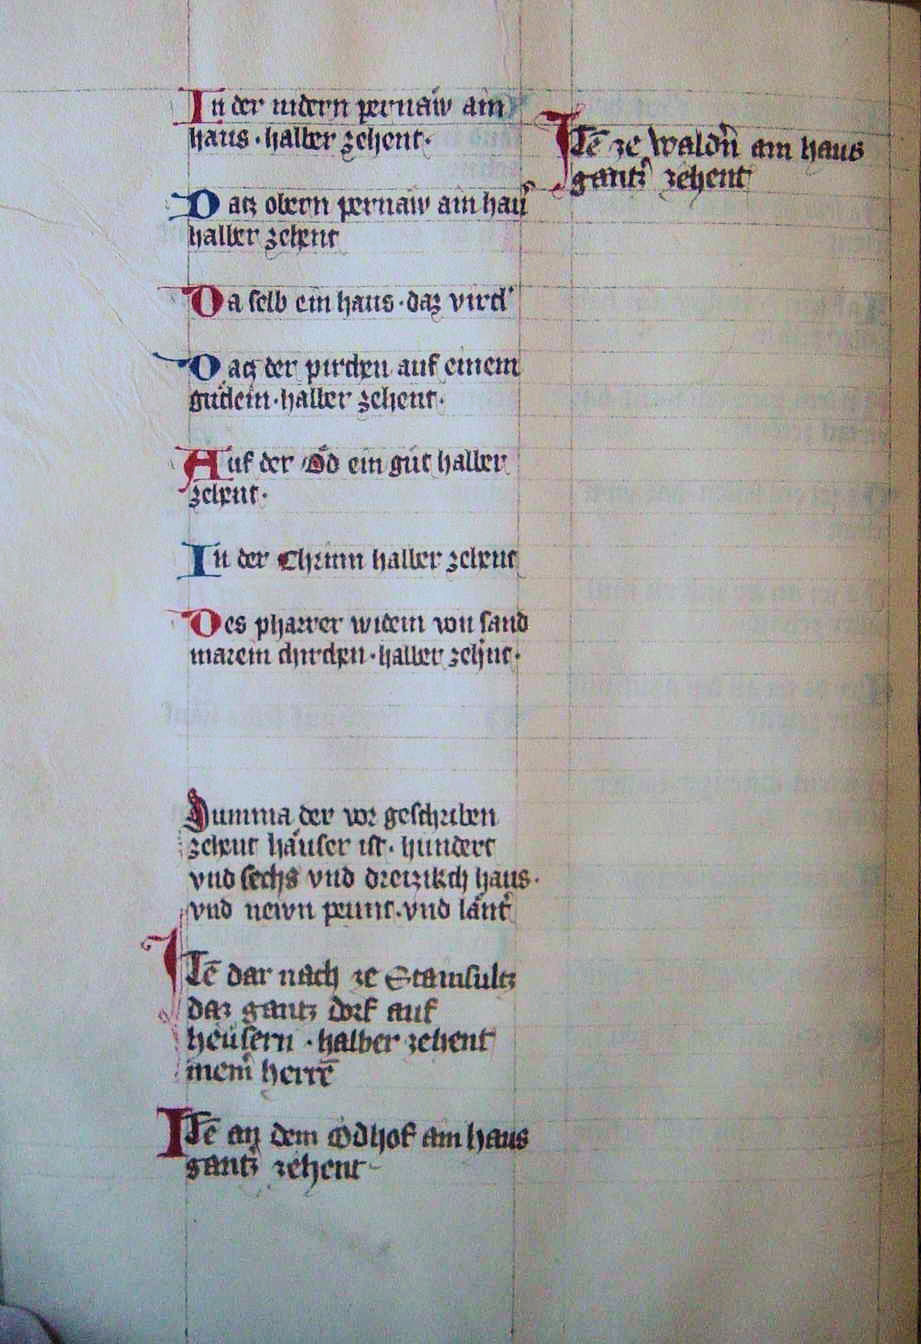 In der nidern pernaw ain
haus · halber zehent ·
Datz obern pernaw ain hau͛
halber zehent
Da selb ein haus · daz virtl͛
Datz der pirchen auf einem
gůtlein · halber zehent ·
Auf der Ǒd ein gůt halber
zehent ·
In der Chrinn halber zehent
Des pharrer widem von sand
marein chirchen · halber zehent ·
Summa der vor geschriben
zehent häuser ist · hundert
vnd sechs vnd dreizikch haus ·
vnd newn peunt · vnd länt͛
Itē dar nach ze Stainsultz
daz gantz dorf auf
heüsern · halber zehent
mein͛ herrē
Itē atz dem Ödhof ain haus
gantz͛ zehent
Itē ze waldn̄ ain haus
gantz͛ zehent